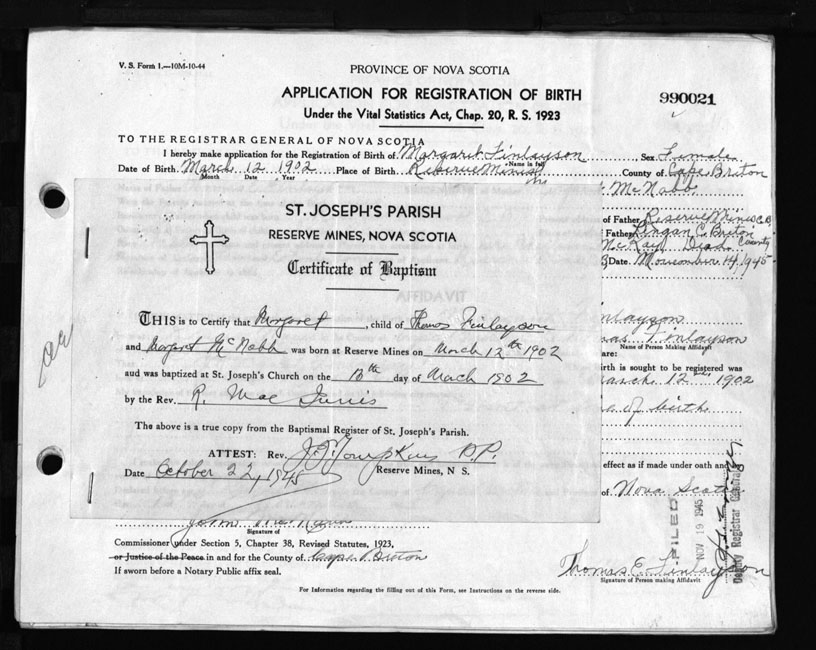 V. S. Form 1.—10M-10-44
PROVINCE OF NOVA SCOTIA
APPLICATION FOR REGISTRATION OF BIRTH
990021
Under the Vital Statistics Act, Chap. 20, R. S. 1923
TO THE REGISTRAR GENERAL OF NOVA SCOTIA
I hereby make application for the Registration of Birth of Margaret Finlayson Sex Female
Name in full
Date of Birth March 12 1902 Place of Birth Reserve Mines County of Cape Briton
Month Date Year
McNabb
of Father Reserve Mines C.B
Father Breton
McKay Dead County
Date 14, 1945
ST. JOSEPH'S PARISH
RESERVE MINES, NOVA SCOTIA
Certificate of Baptism
THIS is to Certify that Margaret, child of Thomas Finlayson
and Margaret McNabb was born at Reserve Mines on March 12th 1902
and was baptized at St. Joseph's Church on the day of March 1902
by the Rev. R. Mac
The above is a true copy from the Baptismal Register of St. Joseph's Parish.
ATTEST: Rev. J. J. Tompkins P.P.
Date October 22, 1945 Reserve Mines, N S.
AFFIDAVIT
inlayson
mas Finlayson
Name of Person Making Affidavit
are:
irth is sought to be registered was
March 12 1902
of birth
effect as if made under oath and
of Nova Scotia
FILED
NOV 19 1945
Deputy Registrar General
Signature of
Commissioner under Section 5, Chapter 38, Revised Statutes, 1923,
or Justice of the Peace in and for the County of Cape Breton
If sworn before a Notary Public affix seal.
Thomas E. Finlayson
Signature of Person making Affidavit
For Information regarding the filling out of this Form, see Instructions on the reverse side.